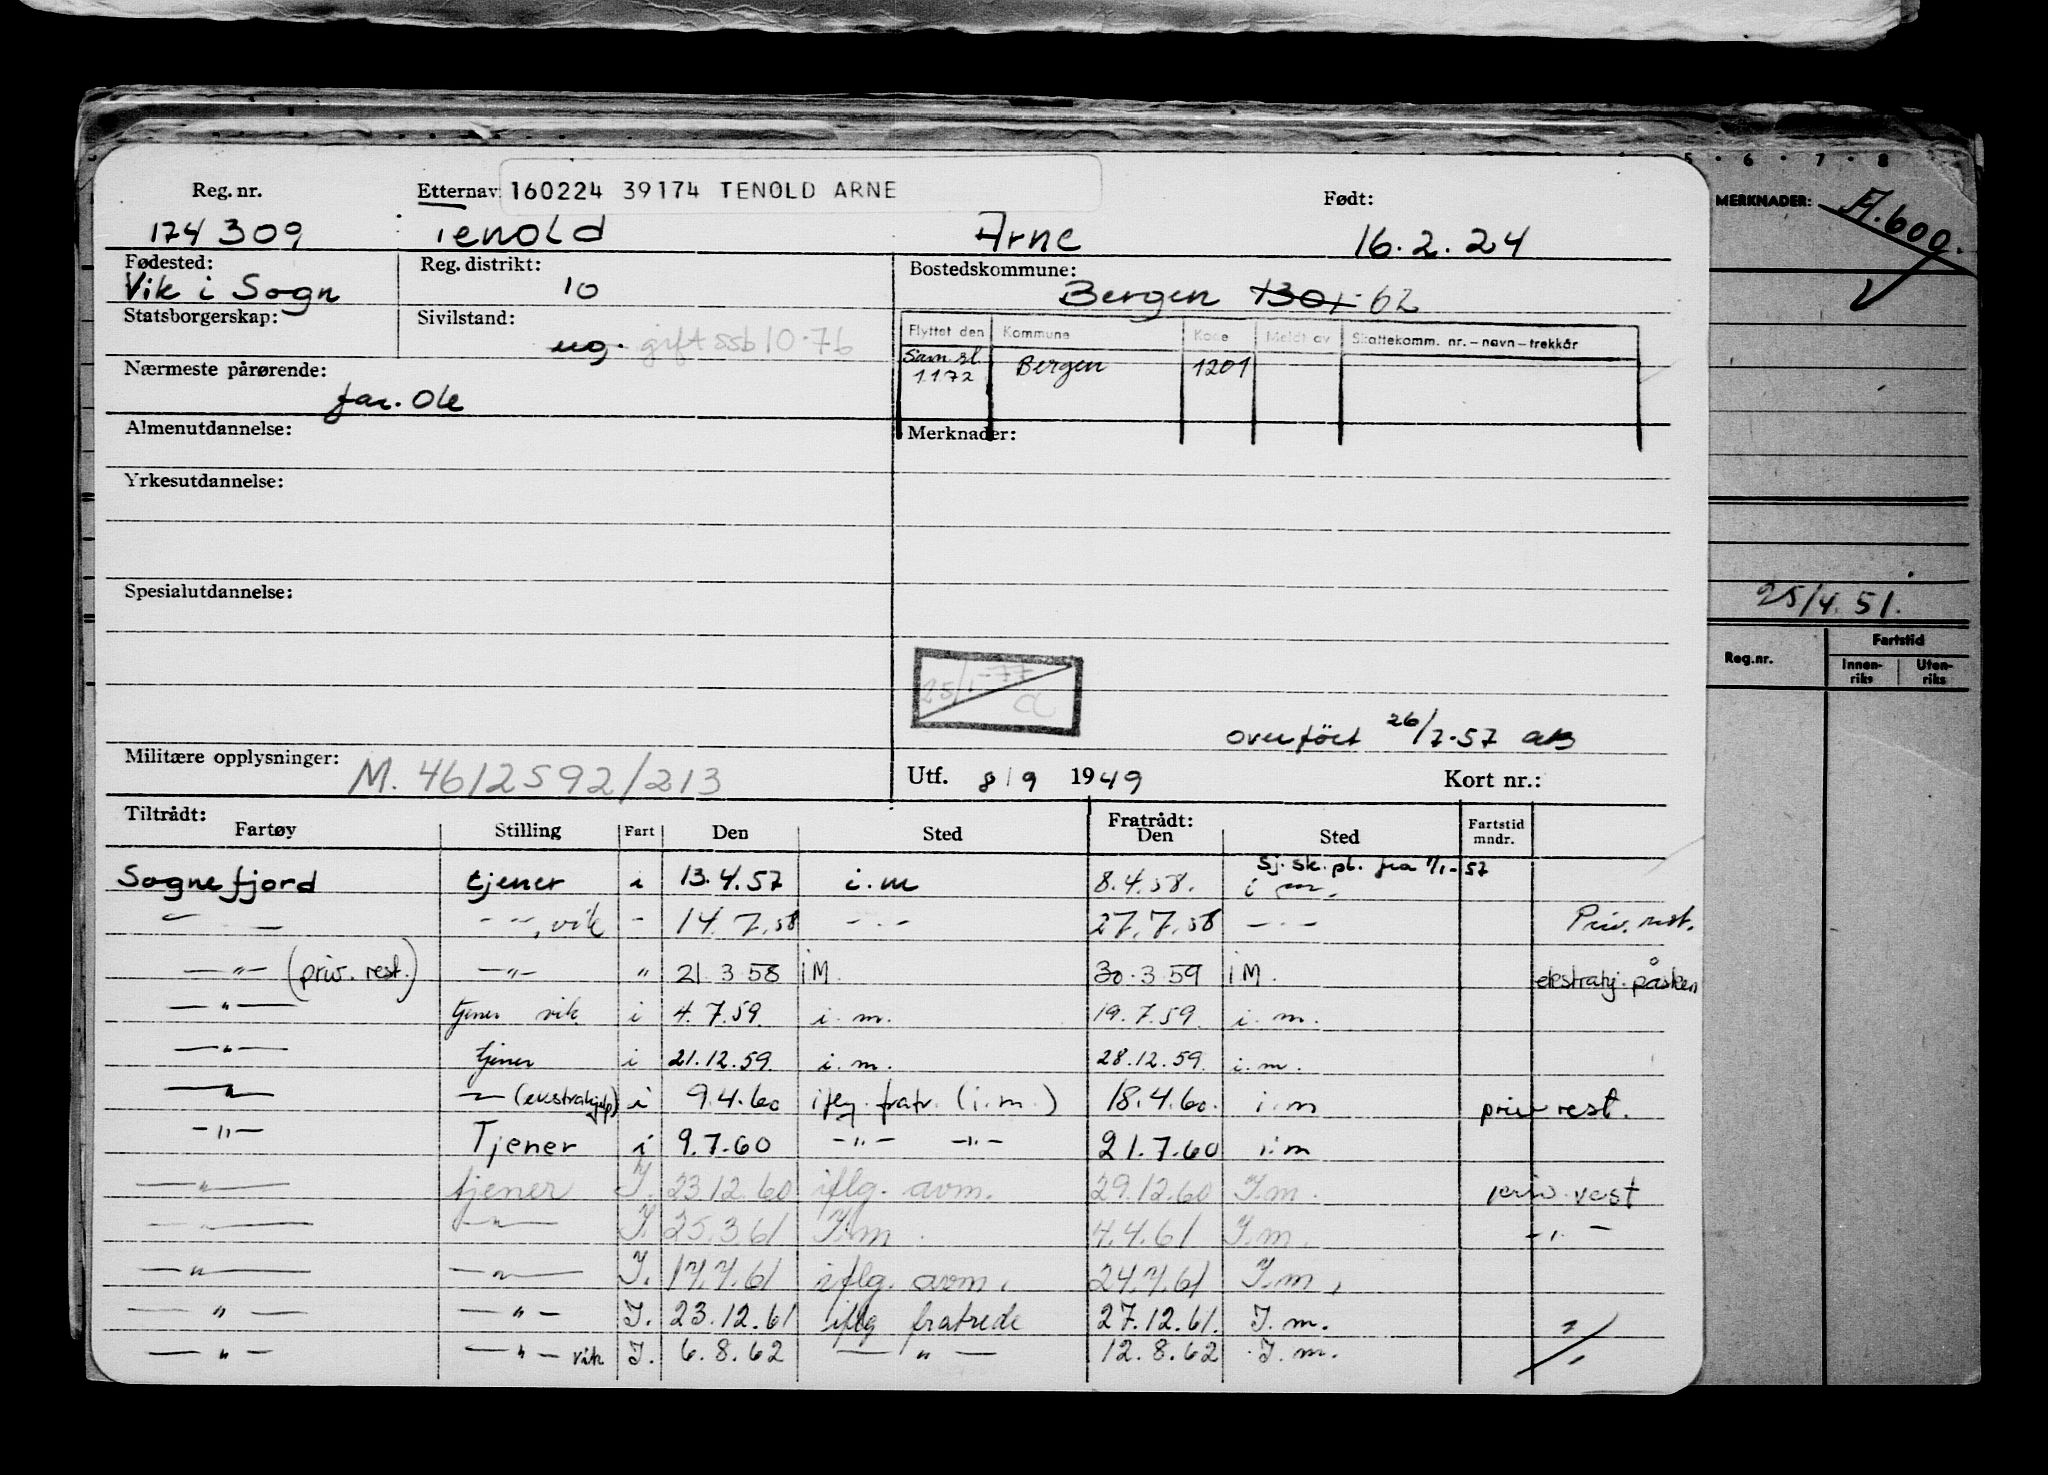 5 · 6 · 7 · 8
MERKNADER: A.600.
Reg. nr. Etternav 160224 39174 TENOLD ARNE Født:
174309 Tenold Arne 16.2.24
Fødested: Reg. distrikt: Bostedskommune:
Vik i Sogn 10 Bergen 1301 62
Statsborgerskap: Sivilstand:
ug. gift ssb 10-76
Flyttet den Kommune Kode Meldt av Skattekomm. nr. – navn – trekkår
Sam sl. 1172 Bergen 1201
Nærmeste pårørende:
far. Ole
Almenutdannelse: Merknader:
Yrkesutdannelse:
Spesialutdannelse:
25/4.51.
Reg.nr. Fartstid
Innenriks Utenriks
25/1-77
overført 26/7-57
Militære opplysninger: M. 4612592/213 Utf. 8/9 1949 Kort nr.:
Tiltrådt: Fratrådt:
Fartøy Stilling Fart Den Sted Den Sted Fartstid mndr.
Sj. sk. pl. fra 1/1-57
Sognefjord tjener i 13.4.57 i.m 8.4.58. i m.
— — -"-, vik - 14.7.58 - - - 27.7.58 - - - Priv. rest.
—"— (priv. rest.) —"— " 21.3.58 i M. 30.3.59 i M. ekstrahj. påsken
—"— tjener vik. i 4.7.59. i. m. 19.7.59. i. m.
—"— tjener i 21.12.59. i. m. 28.12.59. i. m.
—"— —"— (ekstrahjelp) i 9.4.60 iflg. fratr. (i.m.) 18.4.60. i.m priv rest.
—"— Tjener i 9.7.60 —"— —"— 21.7.60 i.m
—"— tjener I. 23.12.60 iflg. avm. 29.12.60 I.m. priv. rest
—"— —"— I. 25.3.61 I.m. 4.4.61 I.m. -"-
—"— —"— I. 17.7.61 iflg. avm. 24.7.61 I.m.
—"— —"— I. 23.12.61 iflg fratrede 27.12.61. I.m. "
—"— —"— vik I. 6.8.62 —"— 12.8.62 I.m. "